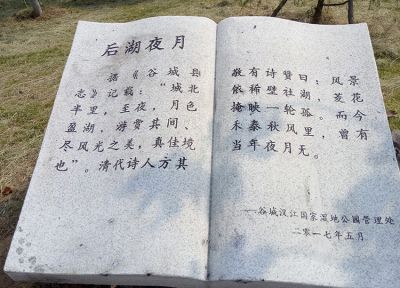 后湖夜月
据《谷城县
志》记载：“城北
半里，至夜，月色
盈湖，游赏其间、
尽风光之美，真佳境
也”。清代诗人方其
敬有诗赞曰：风景
依稀壁社湖，菱花
掩映一轮孤。而今
禾黍秋风里，曾有
当年夜月无。
——谷城汉江国家湿地公园管理处
二〇一七年五月